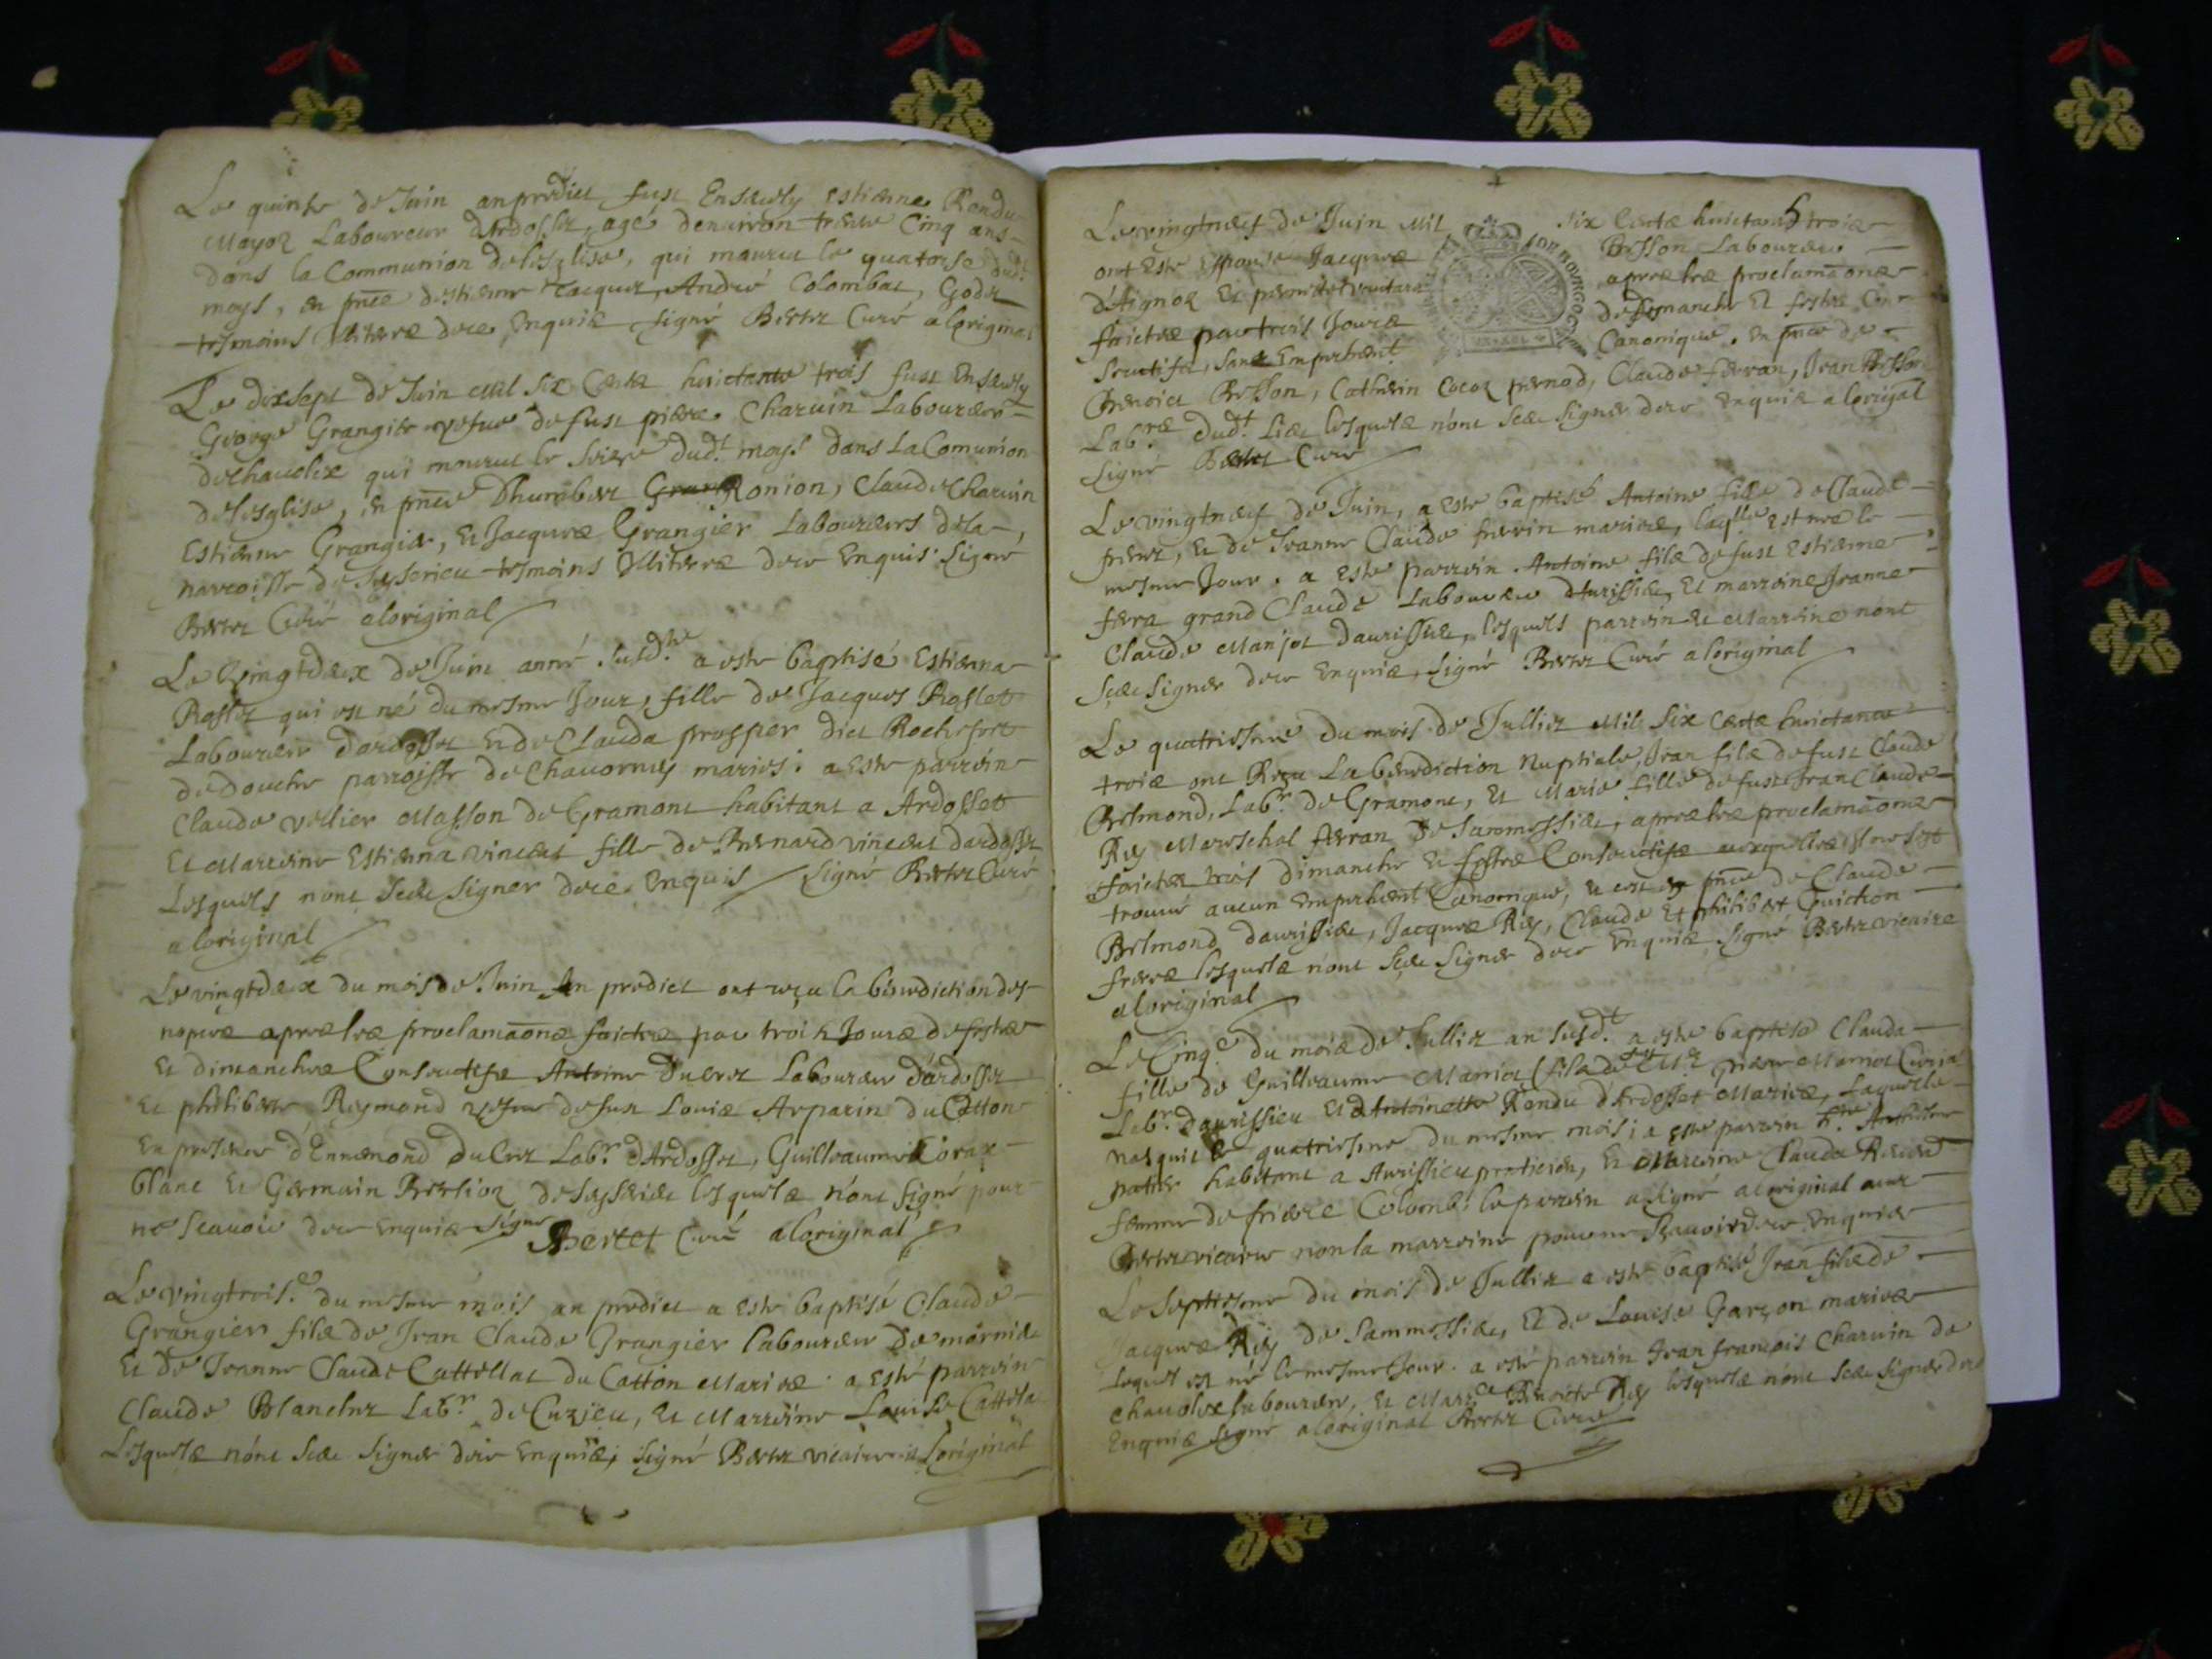 Le quinse de Juin an predict fust Ensevely Estienne Rendu
Mayor Laboureur d'Ardosset, agé denviron trente Cinq ans
dans la Communion de lesglise, qui mourut le quatorse dudt
moys, en pnce destienne Jacquet, André Colombat, Godet
tesmoins Illiteres dece Enquis signé Bertet Curé a loriginal
Le dixsept de Juin Mil Six Cents huictante trois fust Ensevely
George Grangier vefve de fust piere Charvin Laboureur
de Chavolex qui mourut le Seize dudt moys dans La Comunion
de lesglise, en pnce Dhumbert Ronion, Claude Charvin
Estienne Grangier, Et Jacques Grangier Laboureurs de la
parroisse de tesmoins Illiteres dece Enquis Signé
Bertet Curé a loriginal
Le Vingtdeux de Juin anné susdte a este baptisé Estienna
Rosset qui est né du mesme Jour, fille de Jacques Rosset
Laboureur dardosset Et de Clauda prosper dict Rochefort
de parroisse de Chavorney mariés; a Este parrein
Claude vellier Masson de Gramont habitant a Ardosset
Et Marreine Estienna vincent fille de Bernard vincent dardosset
Lesquels nont Sceu Signer dece Enquis Signé Bertet Curé
a loriginal
Le vingtdeux du mois de Juin An predict ont reçu la benediction des
nopces apres les proclamaons faictes par trois Jours de festes
Et dimanches Consecutifs Antoine Dueret Laboureur d'ardosset
Et philiberte Reymond vefve de fust Louis Arparin du Catton
En presence d'Ennemond Labr d'Ardosset, Guilleaume
blanc Et Germain Berlioz de lesquels n'ont signé pour
ne Scavoir dece Enquis signé Bertet Curé a loriginal
Le vingtroise du mesme mois an predict a Este baptisé Claude
Grangier fils de Jean Claude Grangier laboureur de
Et De Jeanne Claude Cattellat du Catton Mariés a Esté parrein
Claude Blanchet Labr de Cuzieu, Et Marreine Louise Cattela
Lesquels n'ont Sceu Signer dece Enquis, signé Bertet vicaire a Loriginal
Le vingtneuf de Juin Mil Six Cents huictante trois 5
ont Este Espousé Jacques Besson Laboureur
apres les proclamaons
faictes par trois Jours de dimanche Et festes Con
secutifs, Sans Empechent Canonique, En pnce de
Benoict Besson, Catherin Cocoz pernod, Claude ferran, Jean Besson
Labrs dudt Lieu lesquels n'ont Sceu Signer dece Enquis a lorigal
Signé Bertet Curé
Le vingtneuf de Juin, a Este baptisé Antoine fils de Claude
Et de Jeanne Claude mariés, laqlle est nee le
mesme Jour. a Este parrein Antoine fils de fust Estienne
grand Claude Laboureur Et marreine Jeanne
Claude Manjot lesquels parrein Et Marreine n'ont
Sceu Signer dece Enquis, signé Bertet Curé a loriginal
Le quatriesme du mois de Jullet Mil Six Cents huictante
trois ont Reçu La benediction Nuptiale, Jean fils de fust Claude
Belmond, Labr de Gramont, Et Marie fille de fust Jean Claude
Rey Mareschal ferran de apres les proclamaons
faictes trois dimanche Et festes Consecutifs
trouvé aucun Empechent Canonique, en pnce de Claude
Belmond Jacques Rey, Claude Et philibert Guichon
freres lesquels n'ont Sceu Signer dece Enquis signé Bertet vicaire
a loriginal
Le Cinqe du mois de Jullet an susdt a este baptisé Clauda
fille de Guilleaume Marrion
Labr daurissieu Et d'Antoinette Rendu d'Ardosset Mariés, Laquelle
nasquit le quatriesme du mesme mois; a Este parrein
habitant a Aurissieu praticien, Et Marreine Clauda
femme de Colomb; le parrein a signé a loriginal avec
Bertet vicaire non la marreine pour ne Scavoir dece Enquis
Le Septiesme du mois de Jullet a este baptisé Jean fils de
Jacques Rey de Et de Louise Garçon mariés
lequel est né le mesme Jour. a esté parrein Jean françois Charvin de
Chavolex laboureur, Et Benoite Rey lesquels n'ont Sceu signer dece
Enquis signé a loriginal Bertet Curé